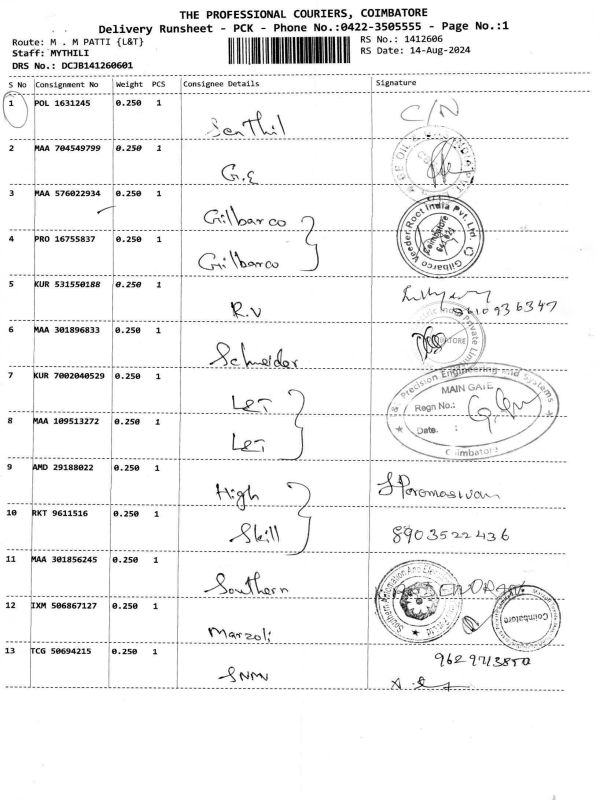 THE PROFESSIONAL COURIERS, COIMBATORE
Delivery Runsheet - PCK - Phone No.:0422-3505555 - Page No.:1
Route: M . M PATTI {L&T}
RS No.: 1412606
Staff: MYTHILI
RS Date: 14-Aug-2024
DRS No.: DCJB141260601
S No Consignment No Weight PCS Consignee Details Signature
1 POL 1631245 0.250 1
Senthil C/N
2 MAA 704549799 0.250 1
G.E
3 MAA 576022934 0.250 1
Gilbarco
Gilbarco Veeder-Root India Pvt. Ltd.
Coimbatore
641 021
4 PRO 16755837 0.250 1
Gilbarco
5 KUR 531550188 0.250 1
R.V
6 MAA 301896833 0.250 1
Schneider
7 KUR 7002040529 0.250 1
L&T
Precision Engineering and Systems
MAIN GATE
Regn No.:
Date. :
Coimbatore
8 MAA 109513272 0.250 1
L&T
9 AMD 29188022 0.250 1
High
10 RKT 9611516 0.250 1
Skill 8903522436
11 MAA 301856245 0.250 1
Southern
12 IXM 506867127 0.250 1
Marzoli
Coimbatore
13 TCG 50694215 0.250 1
SNMV